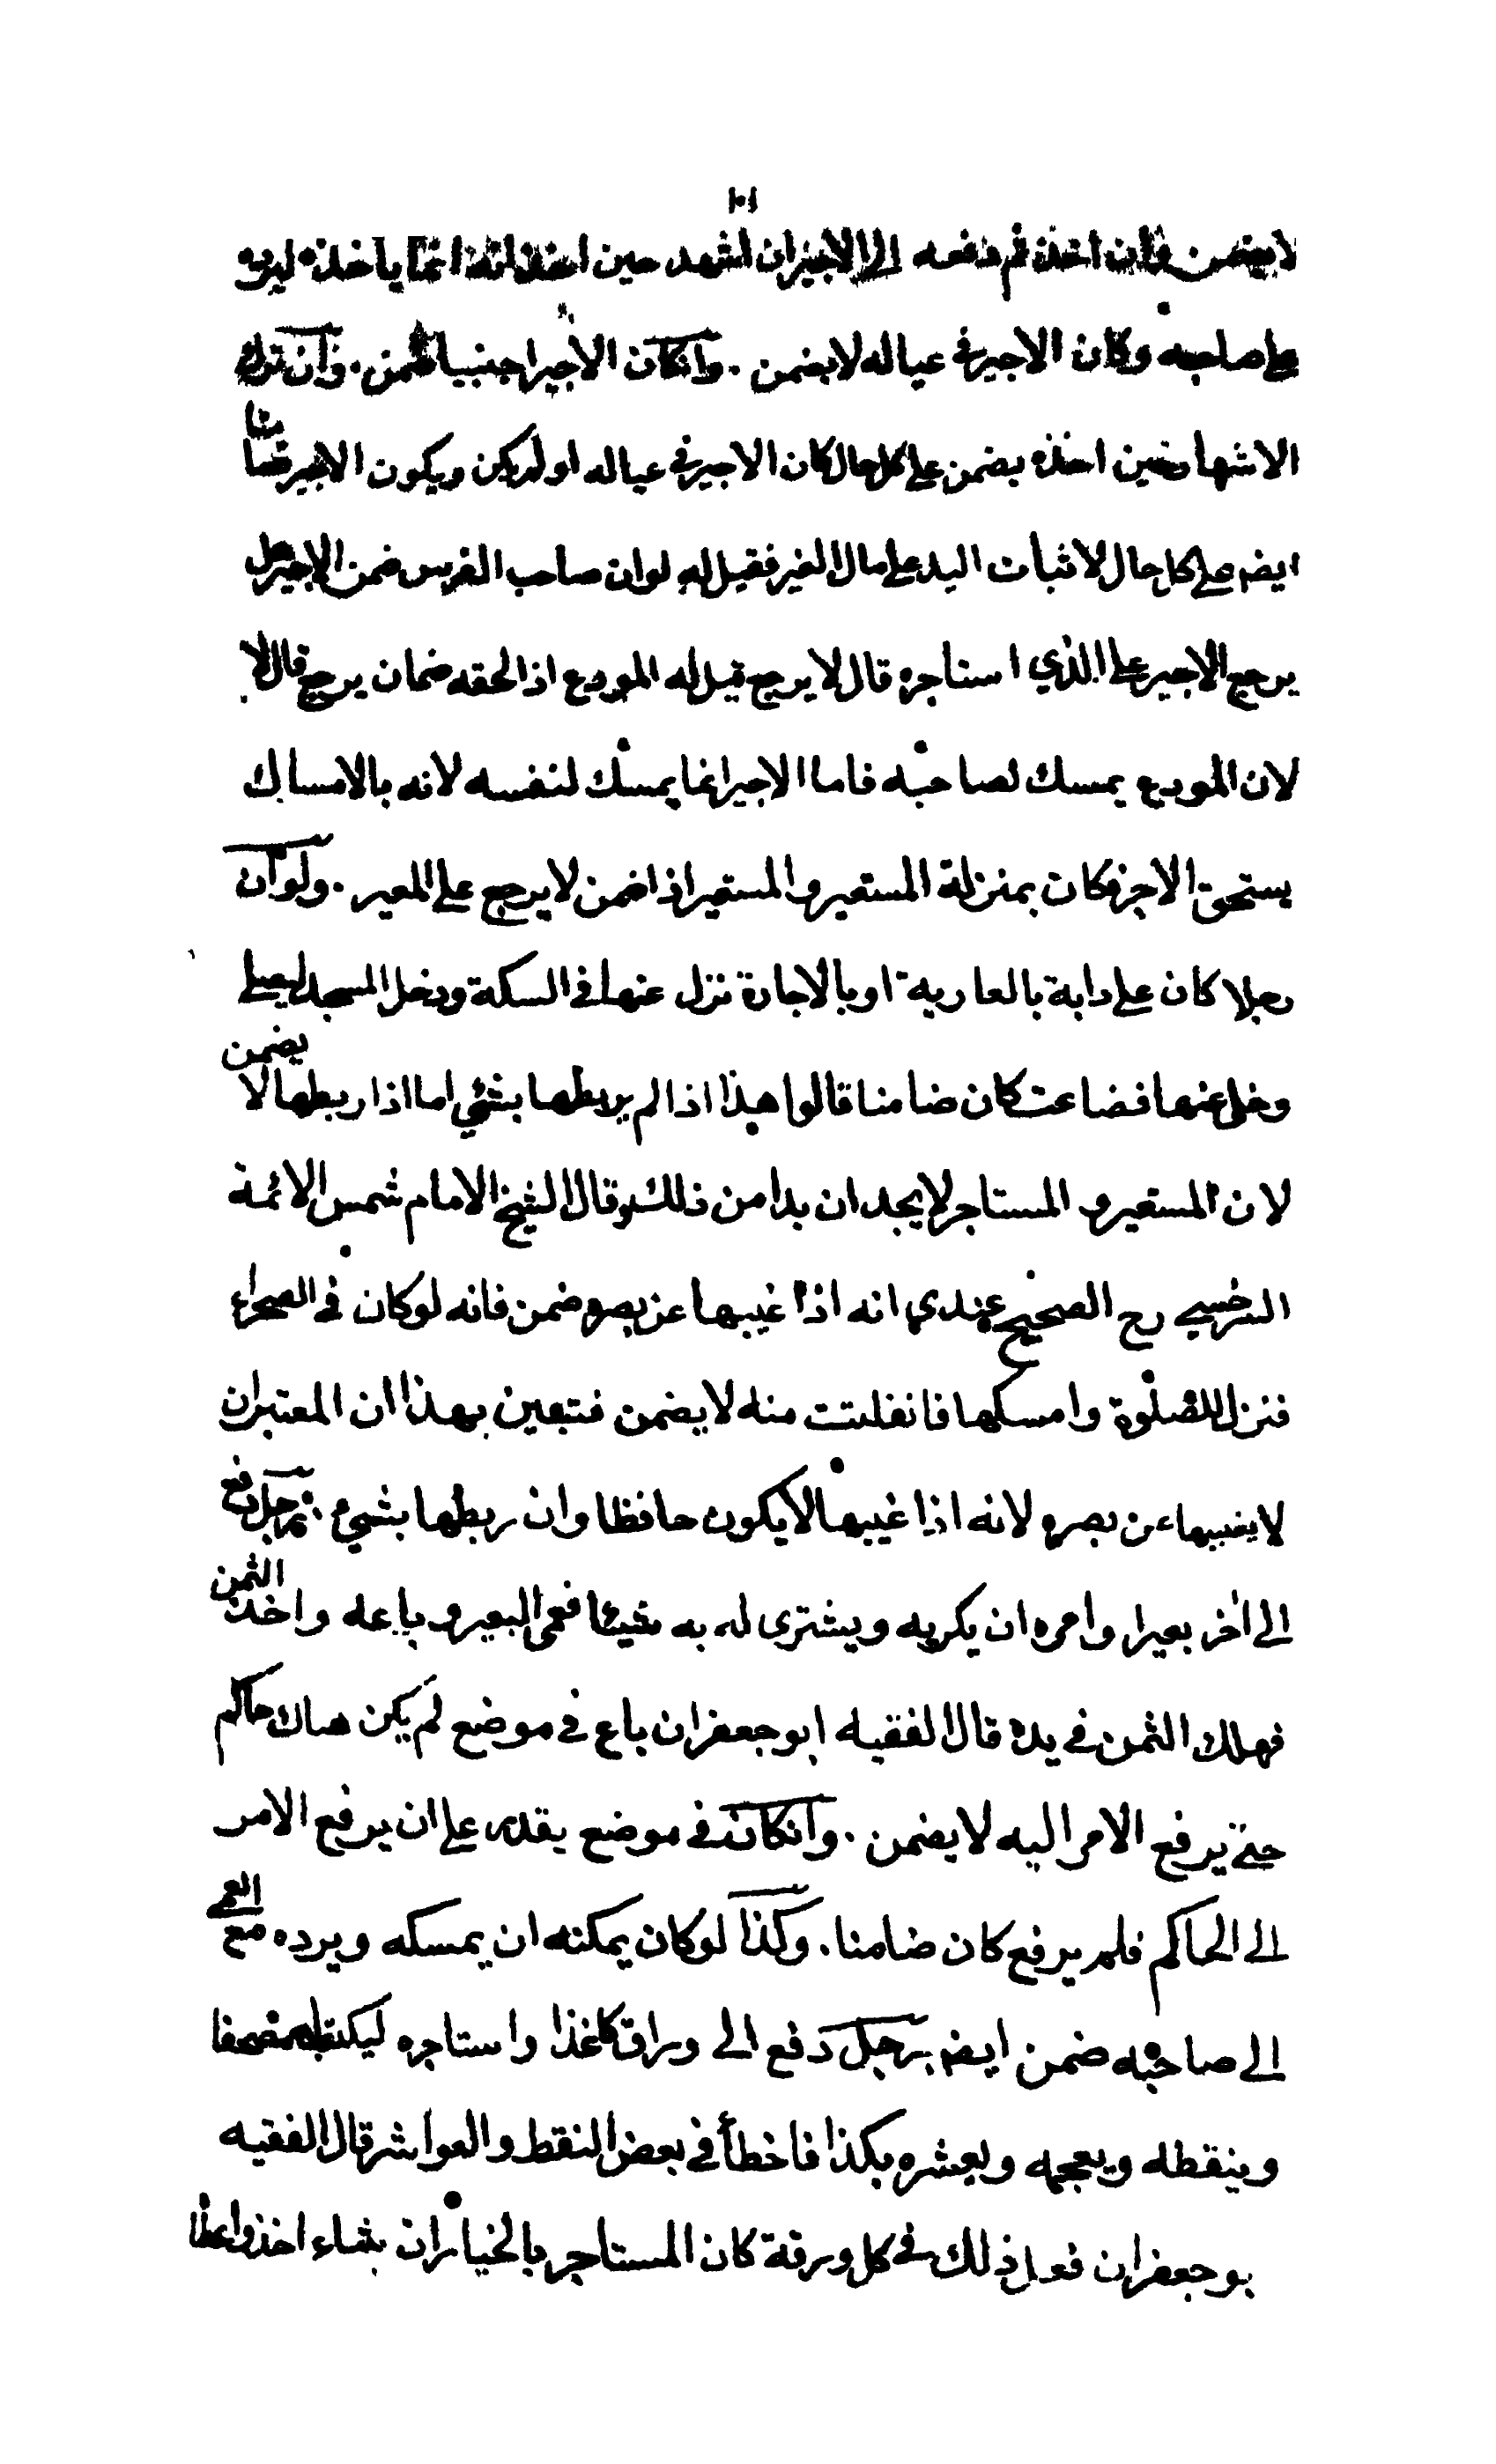 ١٠١
لا يضمن فان اخذ ثم دفعه الى الاجير ان اشهد حين اخذ انه انما ياخذه ليرده
على صاحبه وكان الاجير في عياله لا يضمن . وانكان الاجير اجنبيا ضمن . وان ترك
الاشهاد حين اخذه يضمن على كل حال كان الاجير في عياله او لم يكن ويكون الاجير ضامنا
ايضا على كل حال لاثبات اليد على مال الغير فقيل له لو ان صاحب الفرس ضمن الاجير هل
يرجع الاجير على الذي استاجره قال لا يرجع قيل له المودع اذا لحقه ضمان يرجع قال لا
لان المودع يمسك لصاحبه فاما الاجير انما يمسك لنفسه لانه بالامساك
يستحق الاجر فكان بمنزلة المستعير والمستعير اذا ضمن لا يرجع على المعير . ولو ان
رجلا كان على دابة بالعارية او بالاجارة نزل عنها في السكة ودخل المسجد ليصلي
وخلى عنها فضاعت كان ضامنا قالوا هذا اذا لم يربطها بشئ اما اذا ربطها لا يضمن
لان المستعير والمستاجر لا يجدان بدا من ذلك وقال الشيخ الامام شمس الائمة
السرخسي رح الصحيح عندي انه اذا غيبها عن بصره ضمن فانه لو كان في الصحراء
فنزل للصلوة وامسكها فانفلتت منه لا يضمن فتبين بهذا ان المعتبر ان
لا يغيبها عن بصره لانه اذا غيبها لا يكون حافظا وان ربطها بشئ . رجل دفع
الى اخر بعيرا وامره ان يكريه ويشترى له به شيئا فعمى البعير وباعه واخذ الثمن
فهلك الثمن في يده قال الفقيه ابو جعفر ان باع في موضع لم يكن هناك حاكم
حتى يرفع الامر اليه لا يضمن . وانكان في موضع يقدر على ان يرفع الامر
الى الحاكم فلم يرفع كان ضامنا . وكذا لو كان يمكنه ان يمسكه ويرده مع العمى
الى صاحبه ضمن ايضا رجل دفع الى وراق كاغذا واستاجره ليكتب له مصحفا
وينقطه ويعجمه ويعشره بكذا فاخطأ في بعض النقط والعواشر قال الفقيه
بو جعفر ان فعل ذلك في كل ورقة كان المستاجر بالخيار ان شاء اخذ واعطا